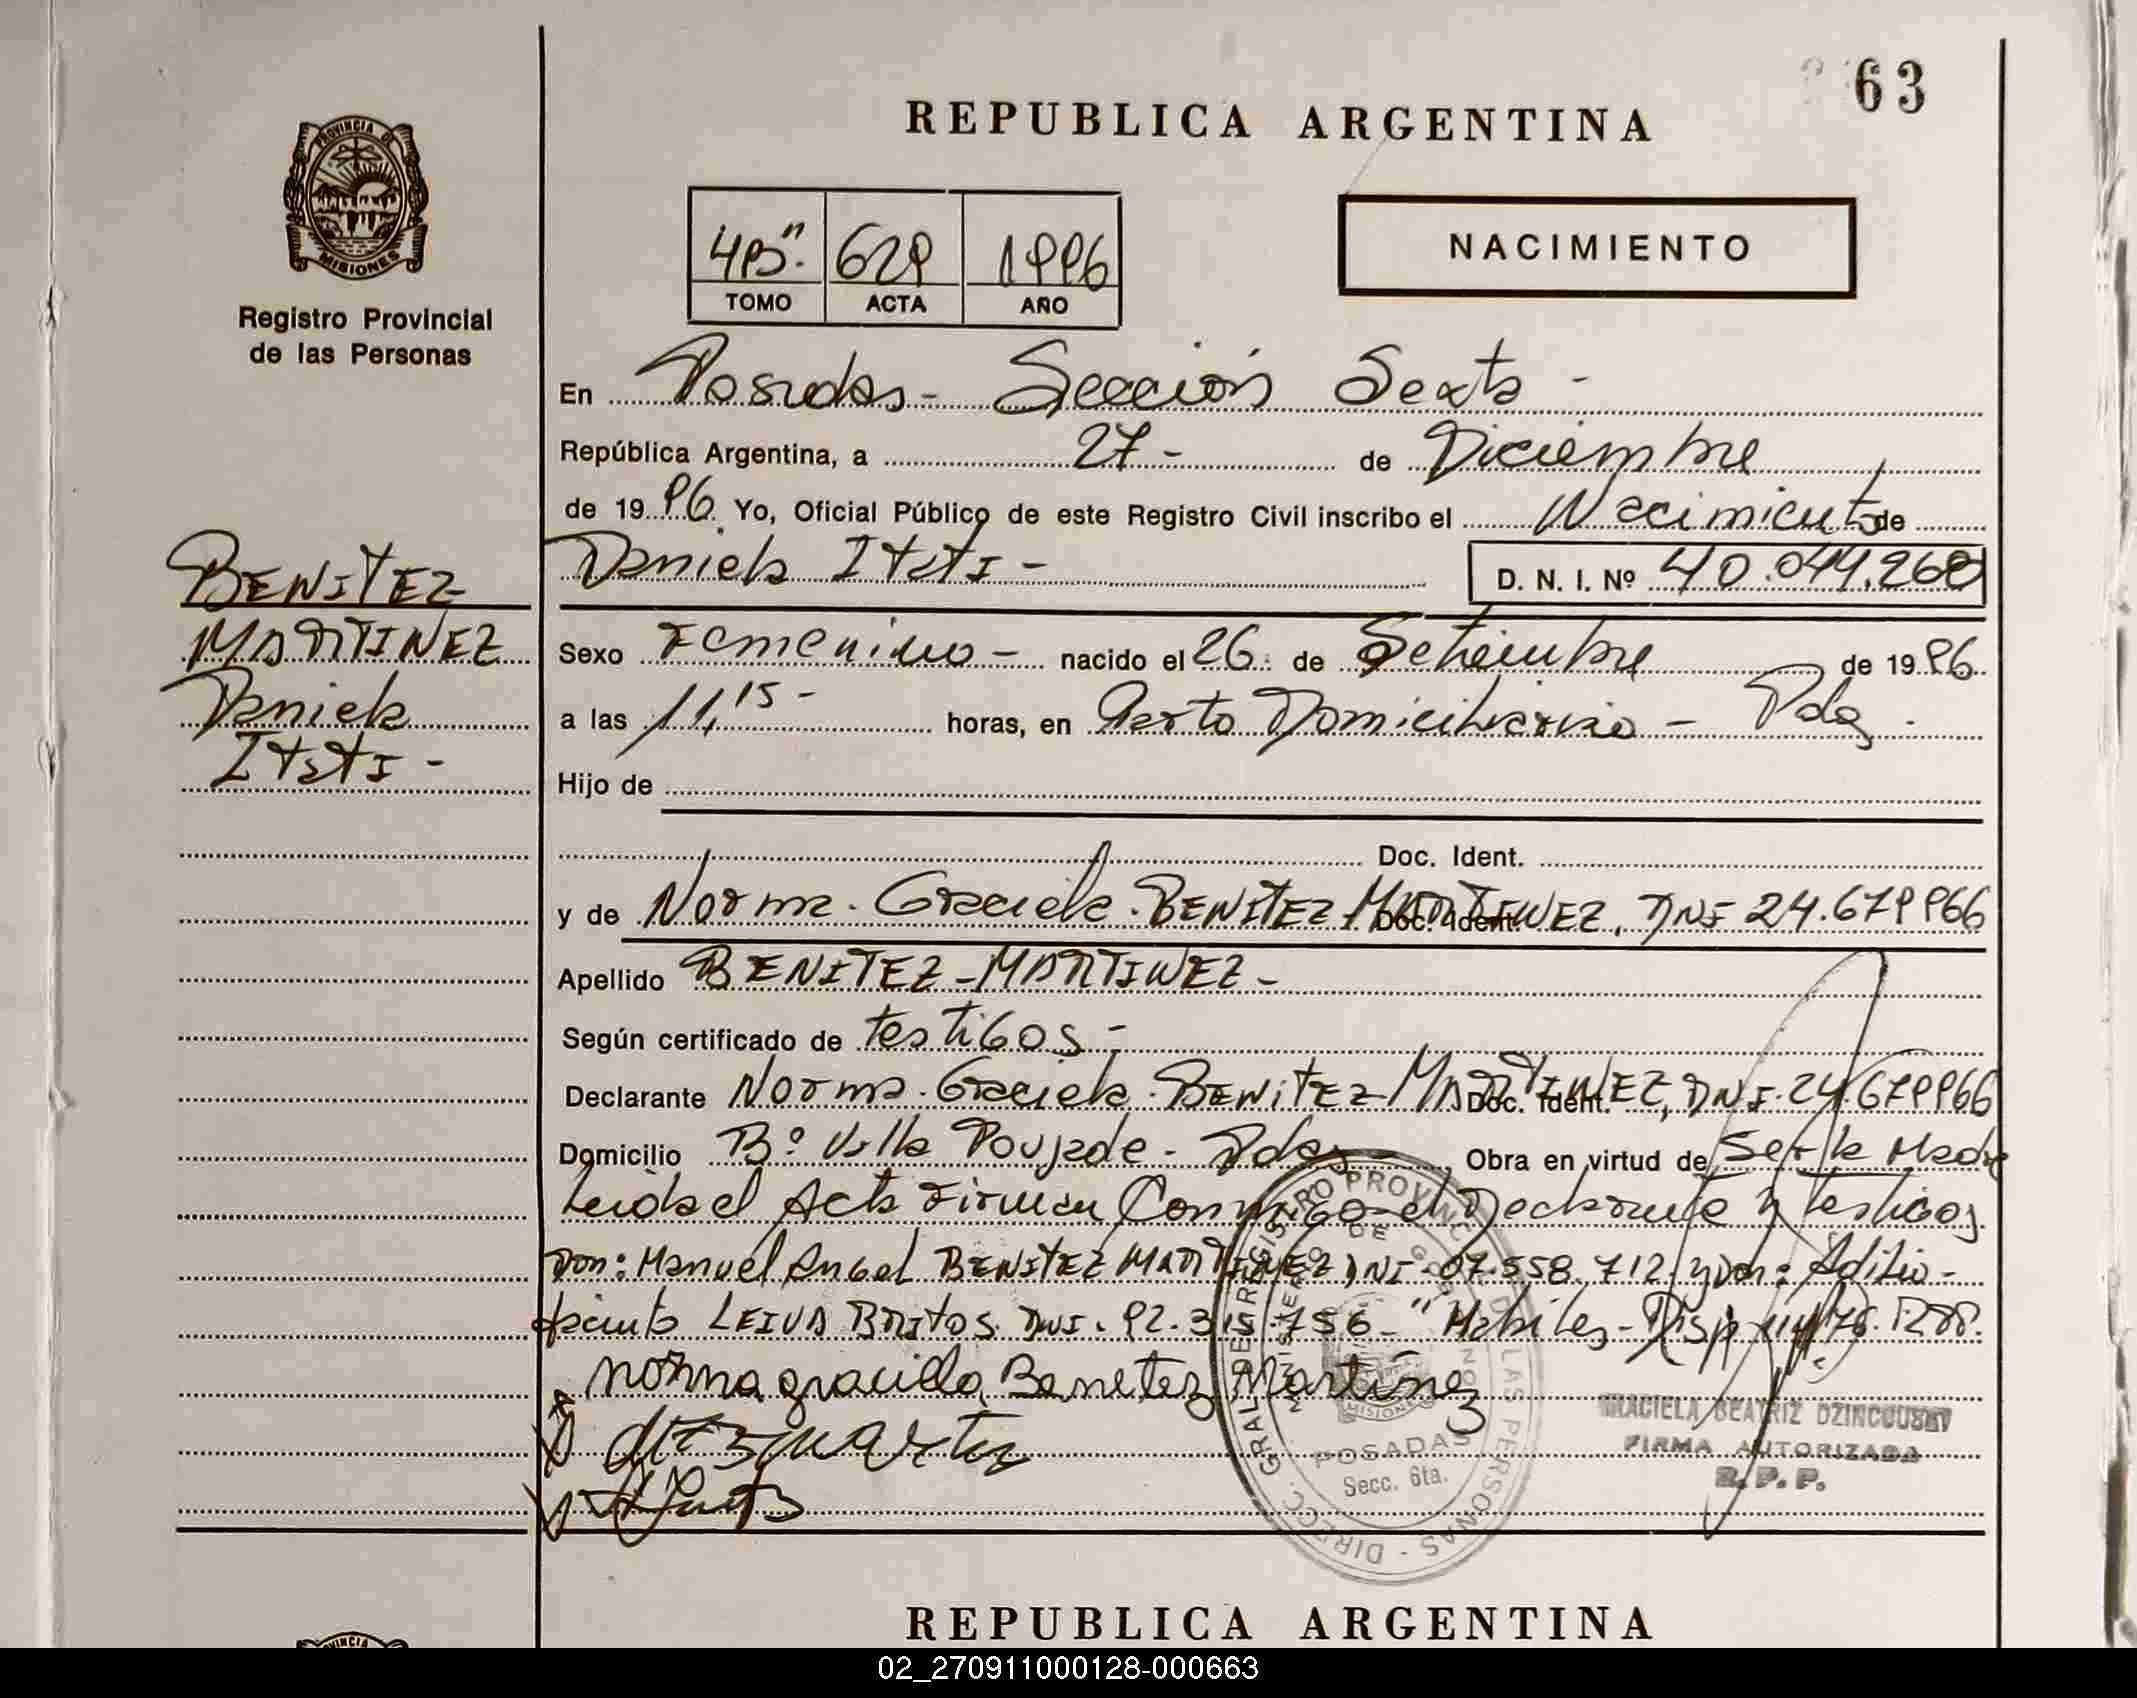 63
REPUBLICA ARGENTINA
PROVINCIA DE
MISIONES
Registro Provincial
de las Personas
4B". 629 1996
TOMO ACTA AÑO
NACIMIENTO
En Posadas - Sección Sexta -
República Argentina, a 27 - de Diciembre
de 1996. Yo, Oficial Público de este Registro Civil inscribo el Nacimiento de
Daniela Itati - D. N. I. Nº 40.044.260
BENITEZ
MARTINEZ
Daniela
Itati -
Sexo Femenino - nacido el 26 de Setiembre de 1996.
a las 11,15 - horas, en Parto Domiciliario - Pdas.
Hijo de
Doc. Ident.
y de Norma Graciela BENITEZ MARTINEZ, DNI 24.679966
Doc. Ident.
Apellido BENITEZ - MARTINEZ -
Según certificado de testigos -
Declarante Norma Graciela BENITEZ MARTINEZ, DNI. 24.679966
Doc. Ident.
Domicilio Bº Villa Poujade - Pdas - Obra en virtud de Ser la Madre
Leida el Acta Firman Conmigo el Declarante y testigos
Don: Manuel Angel BENITEZ MARTINEZ DNI 07.558.712 y Don:
LEIVA BRITOS. DNI. 92.315.756 - "Habiles - Disp
norma graciela Benetez Martines
DIRECC. GRAL. DE REGISTRO PROVINCIAL DE LAS PERSONAS
MINISTERIO DE GOBIERNO
MISIONES
POSADAS
Secc. 6ta.
GRACIELA BEATRIZ
FIRMA AUTORIZADA
R. P. P.
REPUBLICA ARGENTINA
02_270911000128-000663